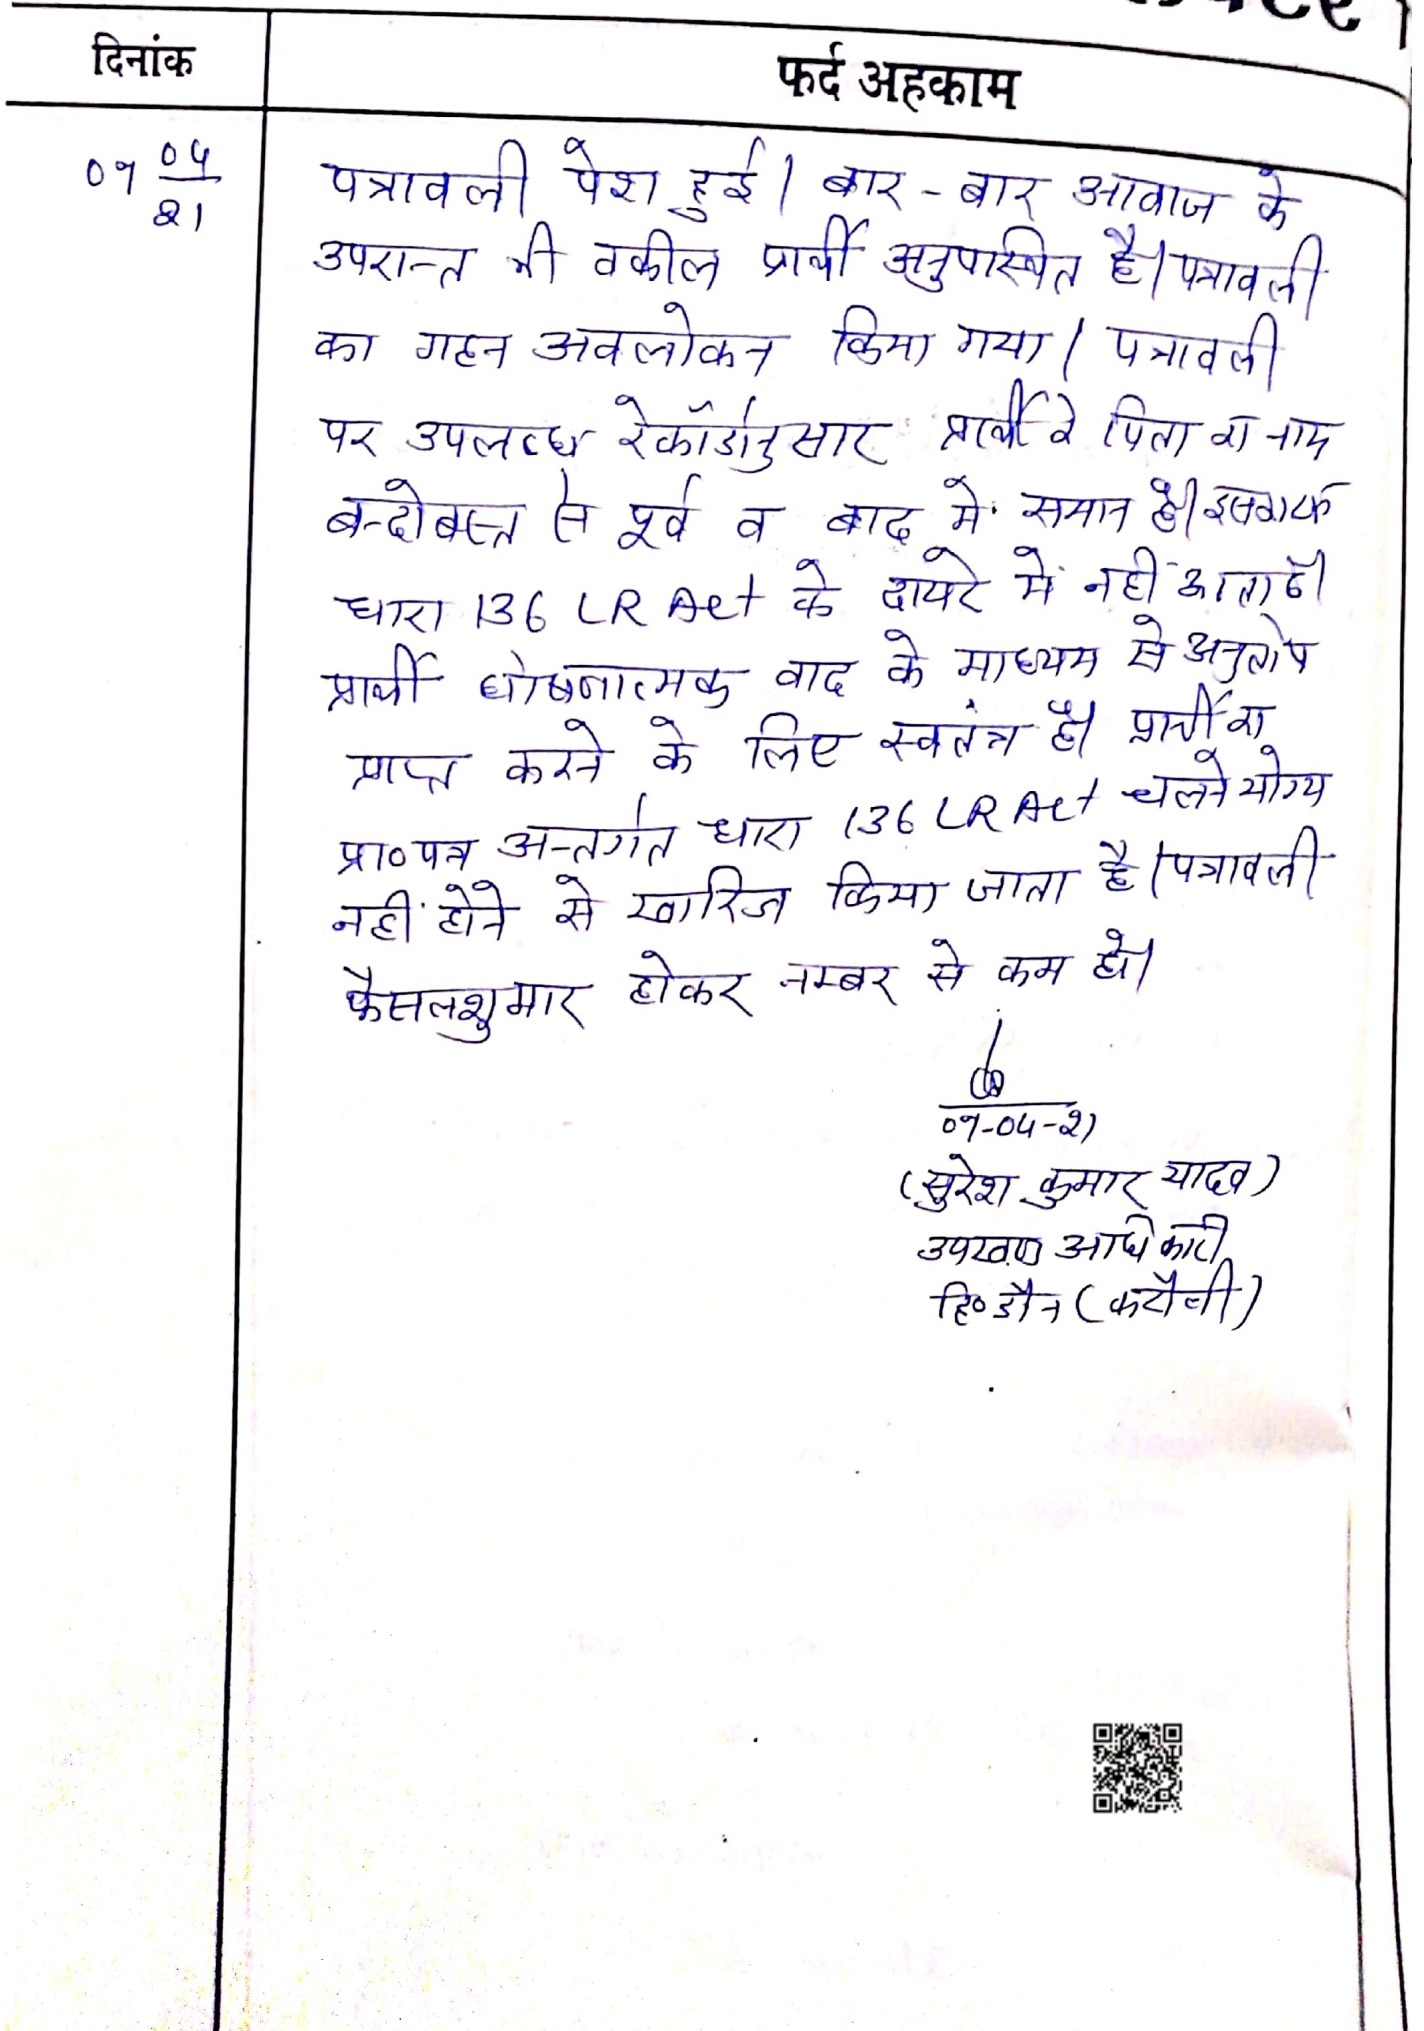 दिनांक
फर्द अहकाम
09 04/21
पत्रावली पेश हुई। बार-बार आवाज के
उपरान्त भी वकील प्रार्थी अनुपस्थित है। पत्रावली
का गहन अवलोकन किया गया। पत्रावली
पर उपलब्ध रेकॉर्डानुसार प्रार्थी के पिता का नाम
बन्दोबस्त से पूर्व व बाद में समान है।
धारा 136 LR Act के दायरे में नहीं आता है।
प्रार्थी घोषणात्मक वाद के माध्यम से अनुतोष
प्राप्त करने के लिए स्वतंत्र है। प्रार्थी का
प्रा॰पत्र अन्तर्गत धारा 136 LR Act चलने योग्य
नहीं होने से खारिज किया जाता है। पत्रावली
फैसलशुमार होकर नम्बर से कम हो।
09-04-21
(सुरेश कुमार यादव)
उपखण्ड अधिकारी
हिण्डौन (करौली)